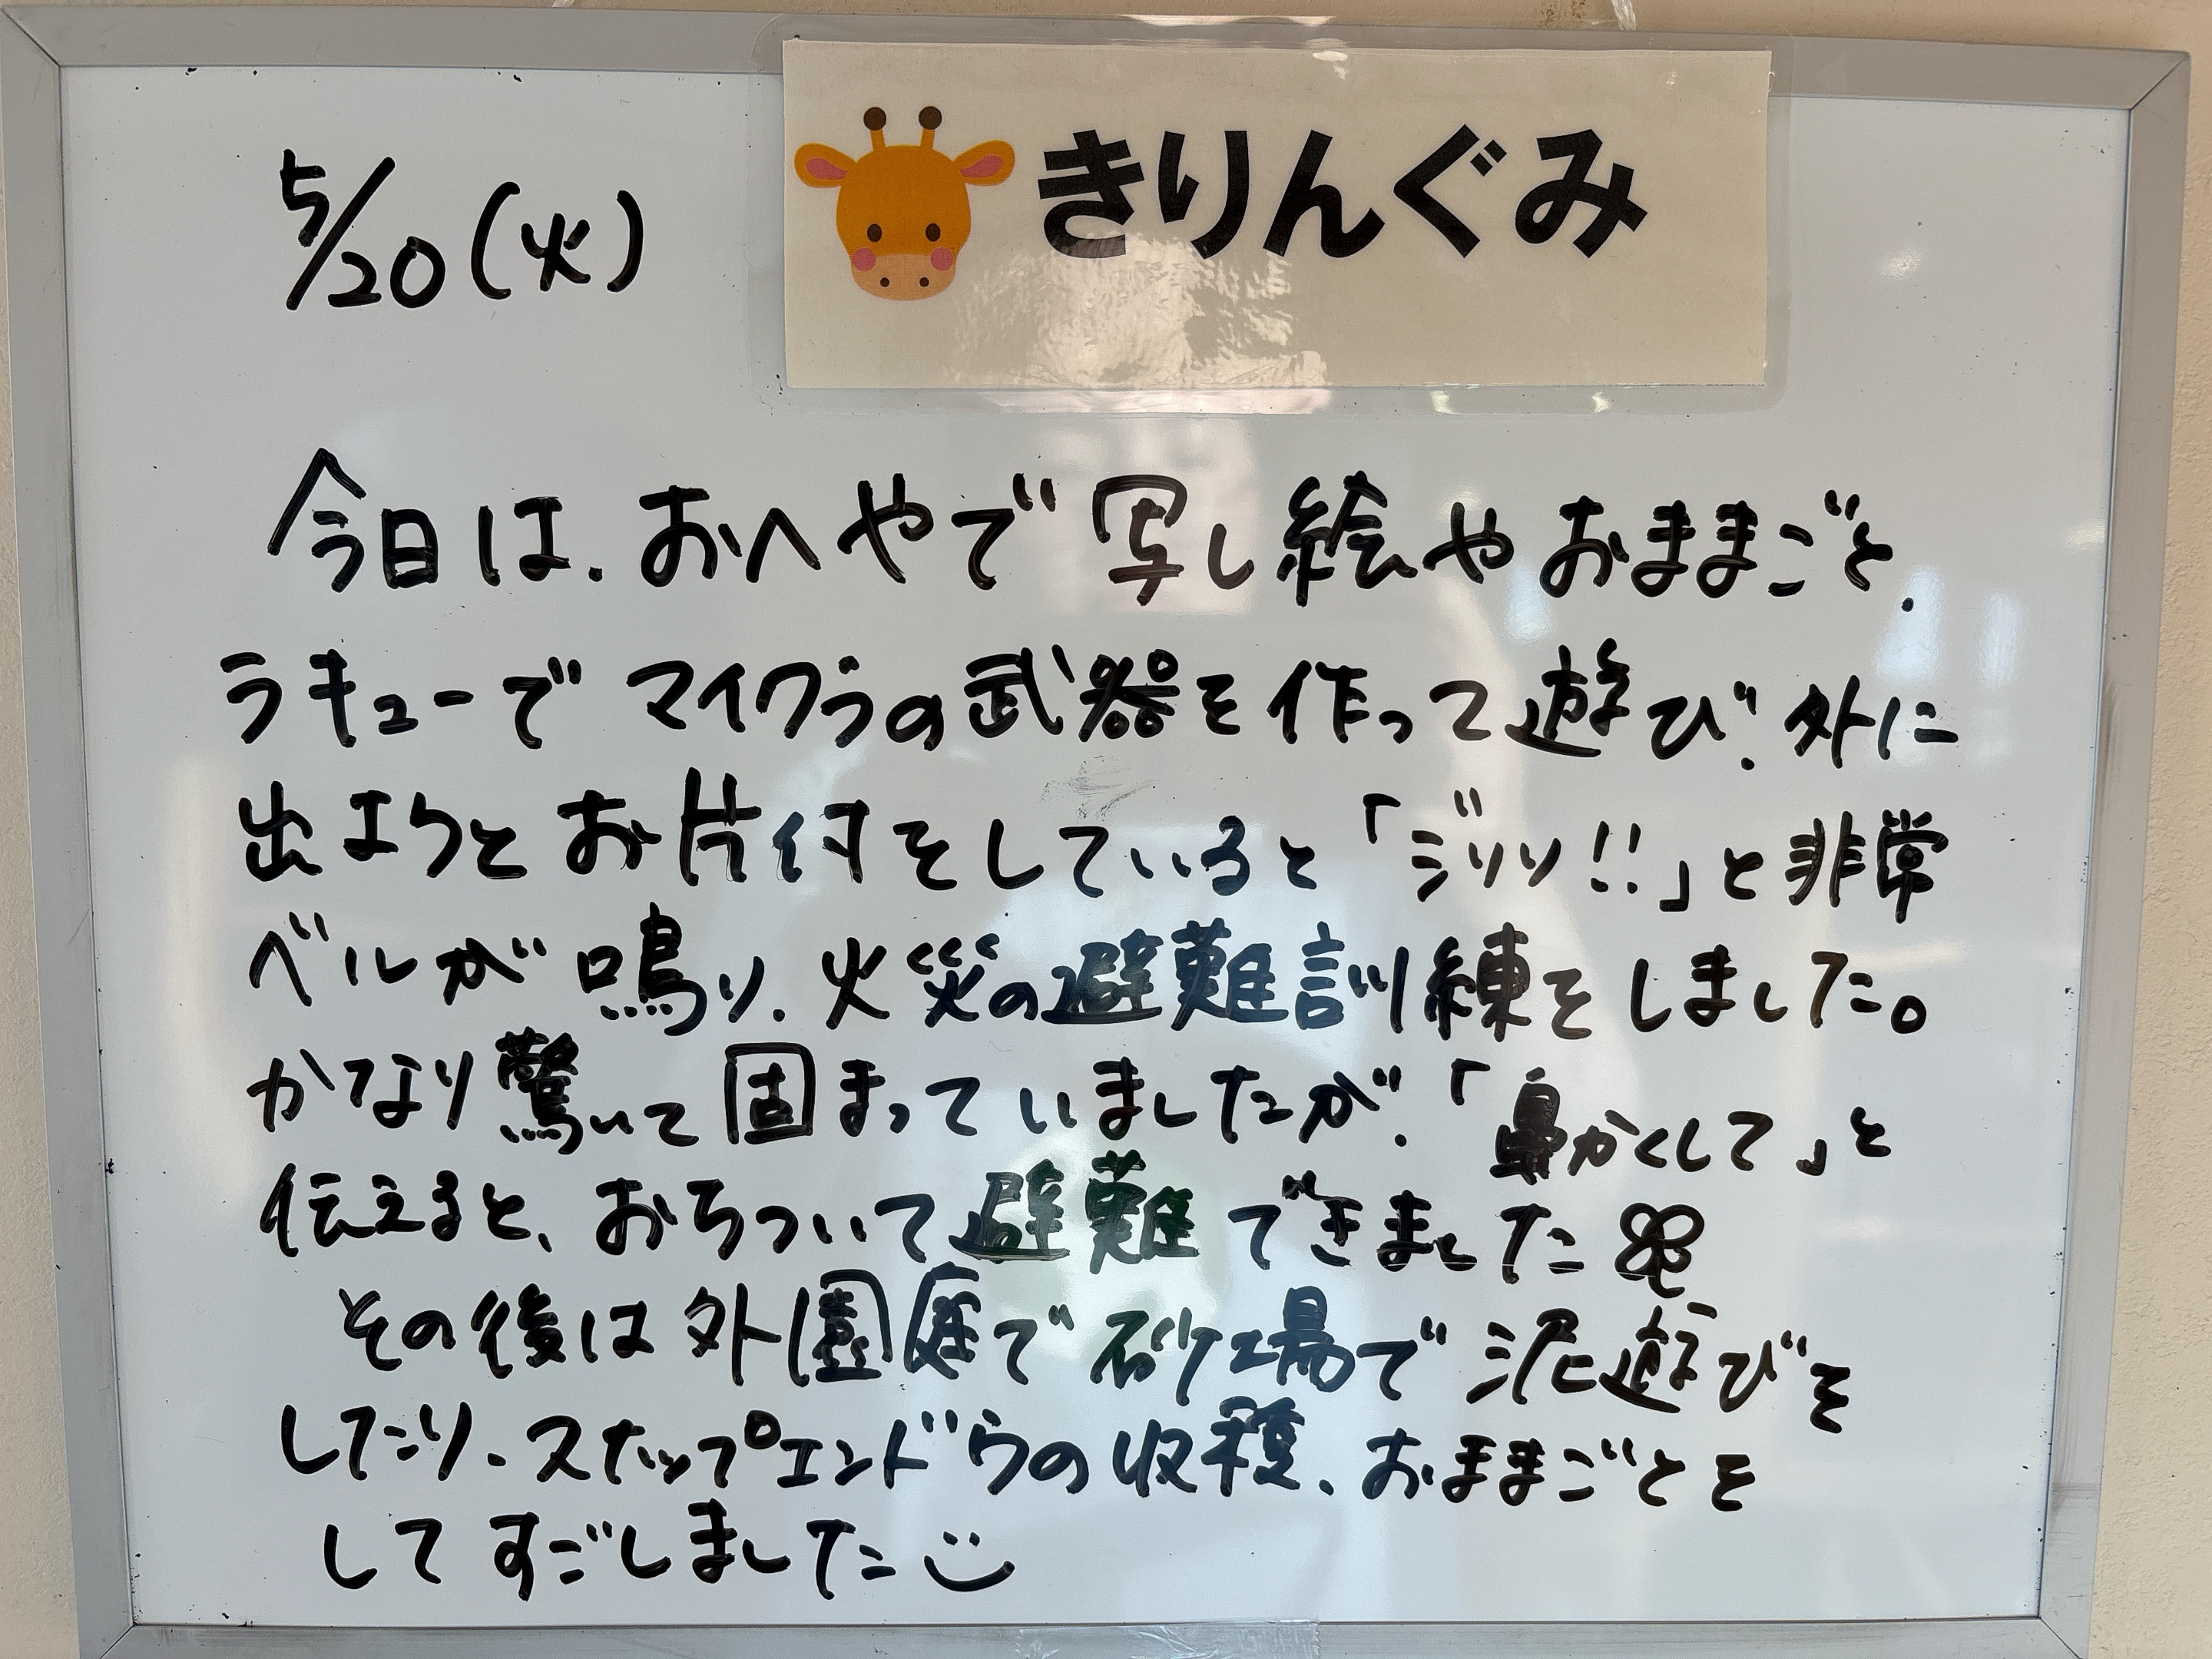 きりんぐみ
5/20(火)
今日は、おへやで写し絵やおままごと、
ラキューでマイクラの武器を作って遊び、外に
出ようとお片付をしていると「ジリリ!!」と非常
ベルが鳴り、火災の避難訓練をしました。
かなり驚いて固まっていましたが、「鼻かくして」と
伝えると、おちついて避難できました
その後は外園庭で砂場で泥遊びを
したり、スナップエンドウの収穫、おままごとを
してすごしました